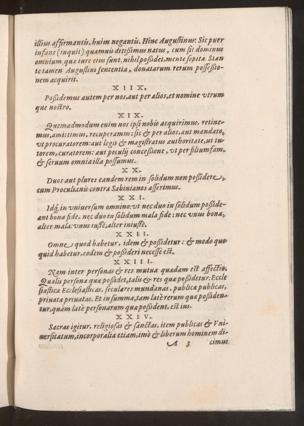 illius affirmantis, huim negantis. Hinc Augustinus: Sic puer
infans (inquit) quamuis ditissimus natus, cum sit dominus
omnium, quę iure eius sunt, nihil possidet mente sopita. Stan
te tamen Augustini sententia, donatarum rerum possessio-
nem acquirit.
X I I X.
Possidemus autem per nos, aut per alios, et nomine vtrum
que nostro.
X I X.
Quemadmodum enim nos ipsi nobis acquirimus, retine-
mus, amittimus, recuperamus: sic & per alios. aut mandato,
vt procuratorem: aut legis & magistratus authoritate, vt tu-
torem, curatorem: aut peculij concessione, vt per filiumfam.
& seruum omnia illa possumus.
X X.
Duos aut plures eandem rem in solidum non possidere,
cum Proculianis contra Sabinianos asserimus.
X X I.
Idq́; in vniuersum omnino: vt nec duo in solidum posside-
ant bona fide. nec duo in solidum mala fide: nec vnus bona,
alter mala. vnus iustè, alter iniustè.
X X I I.
Omne quod habetur, idem & possidetur: & modo quo-
quid habetur, eodem & possideri necesse est.
X X I I I.
Nam inter personas & res mutua quædam est affectio.
Qualis persona quæ possidet, talis & res quæ possidetur. Eccle
siastica Ecclesiasticas, seculares mundanas, publica publicas,
priuata priuatas. Et in summa, tam latè rerum quæ possiden-
tur, quàm latè personarum quæ possident, est ius.
X X I V.
Sacras igitur, religiosas & sanctas, item publicas & Vni-
uersitatum, incorporalia etiam, imò & liberum hominem di-
A 3 cimus